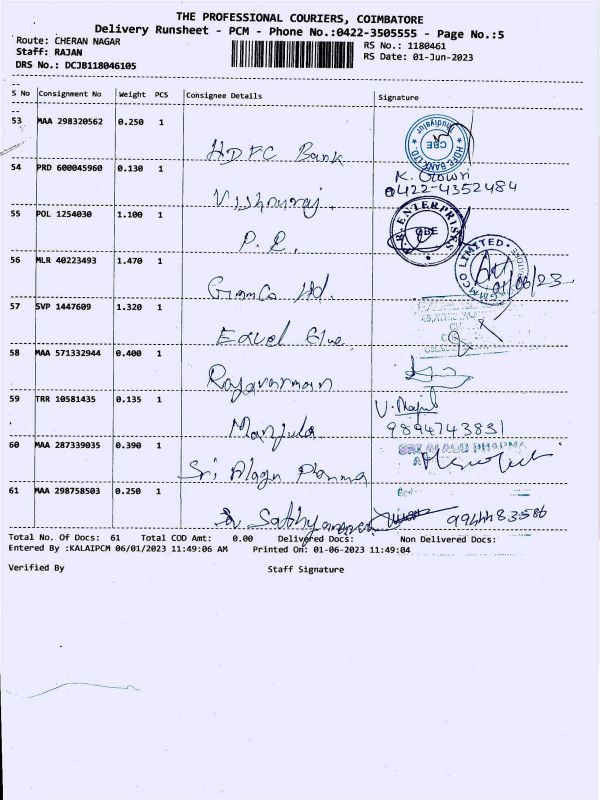 THE PROFESSIONAL COURIERS, COIMBATORE
Delivery Runsheet - PCM - Phone No.:0422-3505555 - Page No.:5
Route: CHERAN NAGAR
RS No.: 1180461
Staff: RAJAN
RS Date: 01-Jun-2023
DRS No.: DCJB118046105
S No Consignment No Weight PCS Consignee Details Signature
53 MAA 298320562 0.250 1
HDFC Bank
HDFC BANK LTD. CBE
54 PRD 600045960 0.130 1
K. Gowri
0422-4352484
Vishnuraj.
55 POL 1254030 1.100 1
ENTERPRISES CBE
P. R.
56 MLR 40223493 1.470 1
GMMCO LIMITED
01/06/23
Gmmco Ltd.
57 SVP 1447609 1.320 1
58 MAA 571332944 0.400 1
Rajavarman
59 TRR 10581435 0.135 1
9894743831
Manjula
60 MAA 287339035 0.390 1
SRI ALAGU PHARMA
Sri Alagu Pharma
61 MAA 298758503 0.250 1
9944483586
Total No. Of Docs: 61 Total COD Amt: 0.00 Delivered Docs: Non Delivered Docs:
Entered By :KALAIPCM 06/01/2023 11:49:06 AM Printed On: 01-06-2023 11:49:04
Verified By Staff Signature